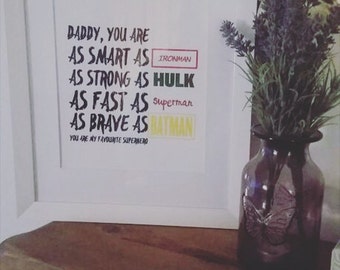 DADDY, YOU ARE
AS SMART AS IRONMAN
AS STRONG AS HULK
AS FAST AS Superman
AS BRAVE AS BATMAN
YOU ARE MY FAVOURITE SUPERHERO